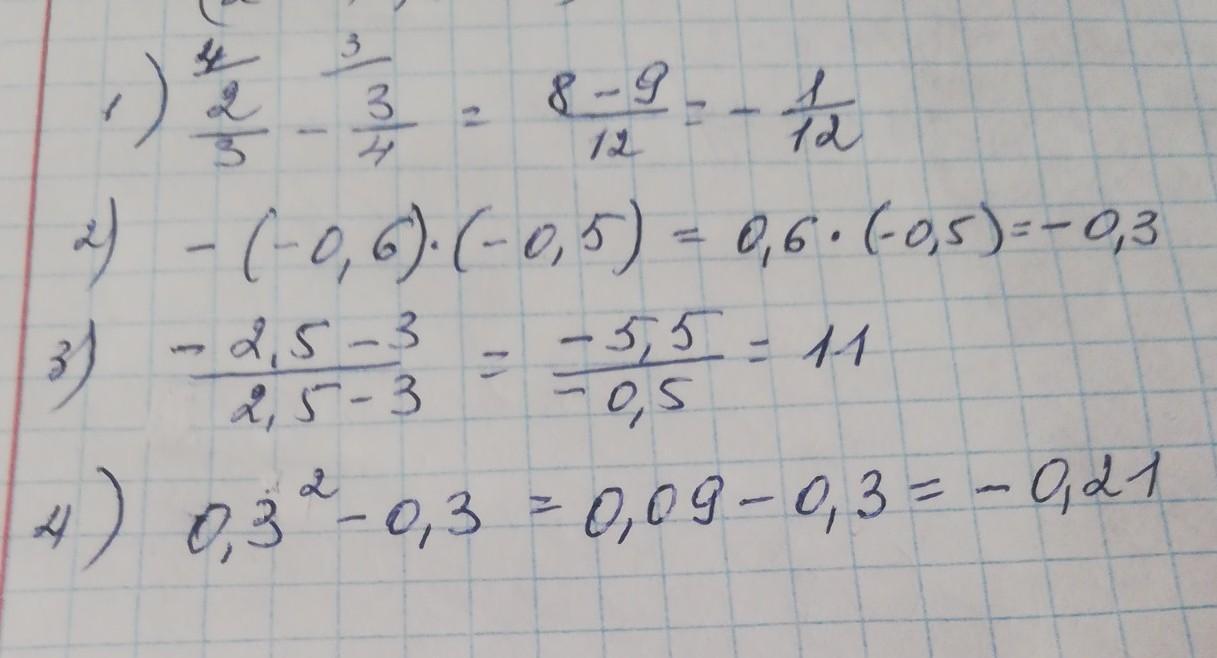 1) 4/ 2/3 - 3/ 3/4 = (8-9)/12 = - 1/12
2) -(-0,6)·(-0,5) = 0,6·(-0,5) = -0,3
3) (-2,5-3)/(2,5-3) = (-5,5)/(-0,5) = 11
4) 0,3² - 0,3 = 0,09 - 0,3 = -0,21